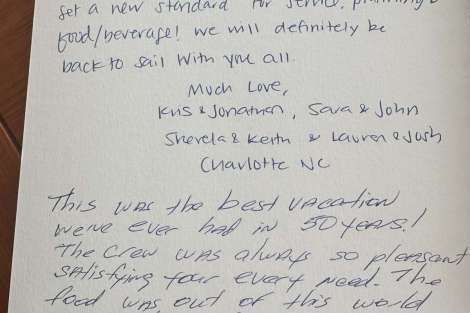 set a new standard for service, planning &
food/beverage! we will definitely be
back to sail with you all.
Much Love,
Kris & Jonathan, Sara & John
Sherela & Keith & Lauren & Josh
Charlotte NC
This was the best vacation
we've ever had in 50 years!
The crew was always so pleasant
satisfying four every need. The
food was out of this world